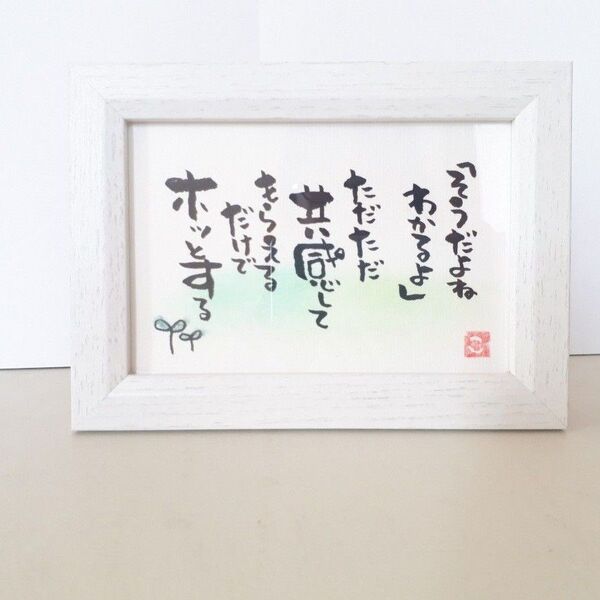 「そうだよね
わかるよ」
ただただ
共感して
もらえる
だけで
ホッとする